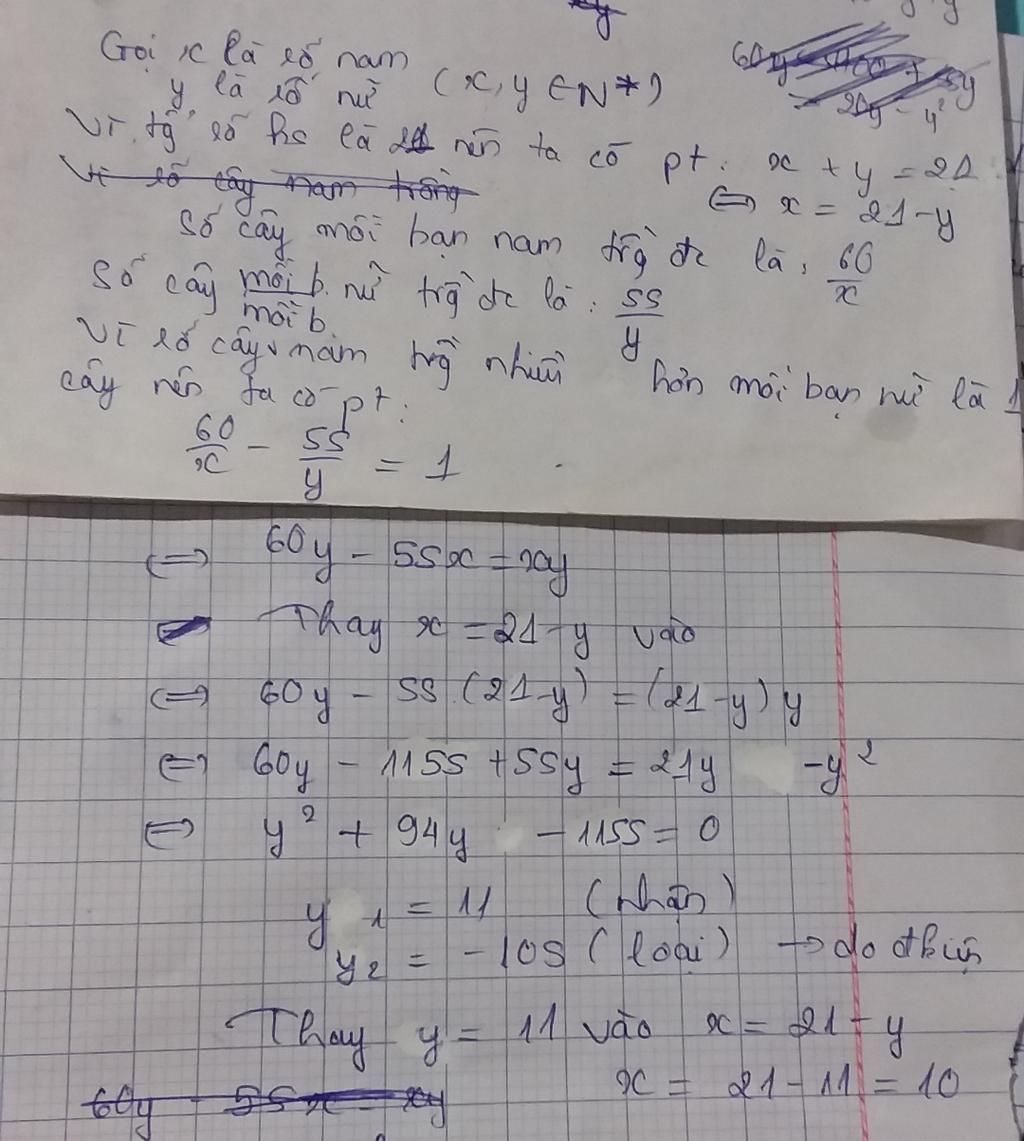 Gọi x là số nam
y là số nữ (x, y ∈ N*)
Vì tg̀ số hs là 21 nên ta có pt: x + y = 21
Vì số cây nam trồng
⇔ x = 21-y
Số cây mỗi bạn nam trg̀ đc là: 60/x
Số cây mỗi b. nữ trg̀ đc là: 55/y
mỗi b.
Vì số cây nam trg̀ nhiều hơn mỗi bạn nữ là 1
cây nên ta có pt:
60/x - 55/y = 1
⇔ 60y - 55x = xy
Thay x = 21-y vào
⇔ 60y - 55.(21-y) = (21-y)y
⇔ 60y - 1155 + 55y = 21y - y²
⇔ y² + 94y - 1155 = 0
y1 = 11 (nhận)
y2 = -105 (loại) → do đkiện
Thay y = 11 vào x = 21-y
x = 21-11 = 10
60y - 55x = xy